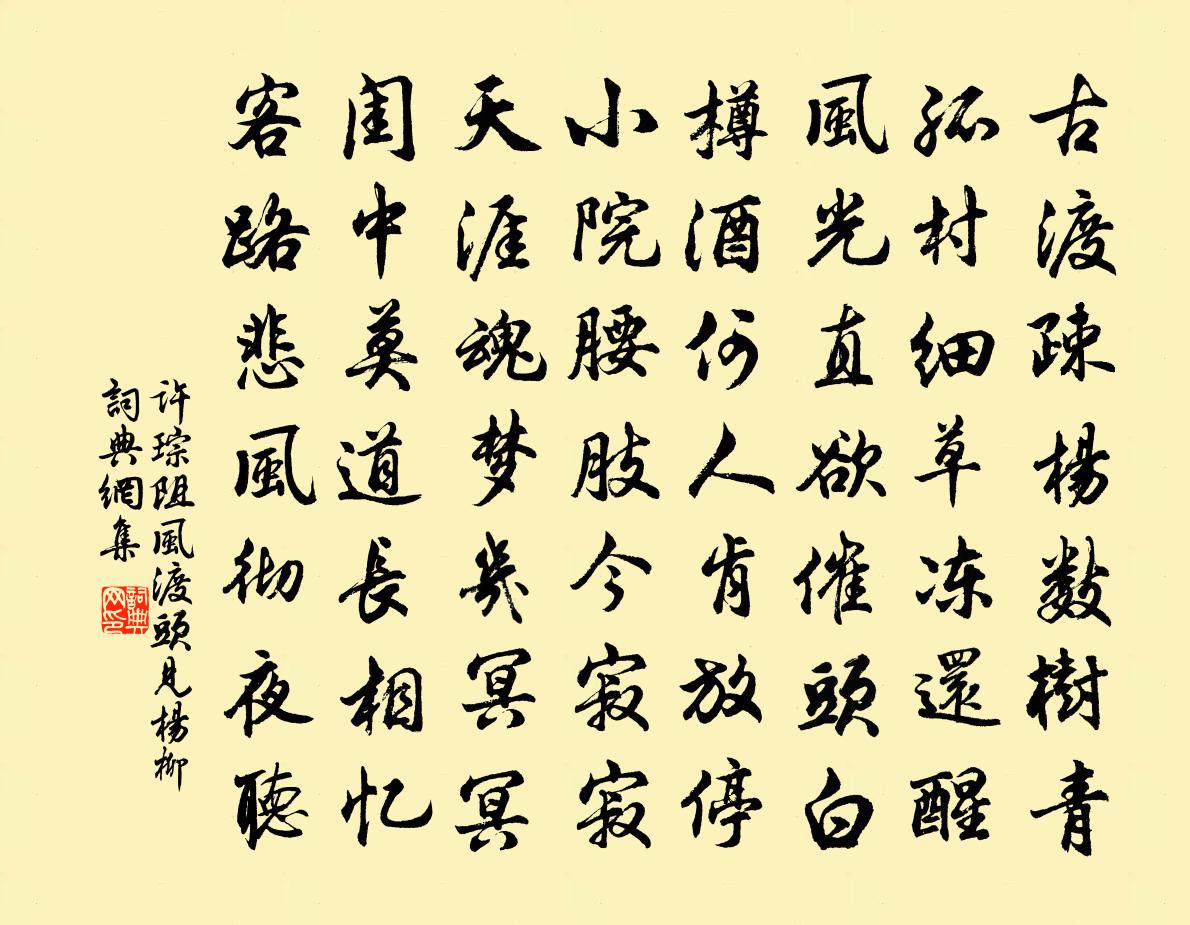 古渡疎楊数樹青
孤村细草冻還醒
風光直欲催頭白
樽酒何人肯放停
小院腰肢今寂寂
天涯魂梦幾冥冥
閨中莫道長相忆
客路悲風彻夜聽
许琮阻風渡頭見楊柳
詞典網集
詞典网印